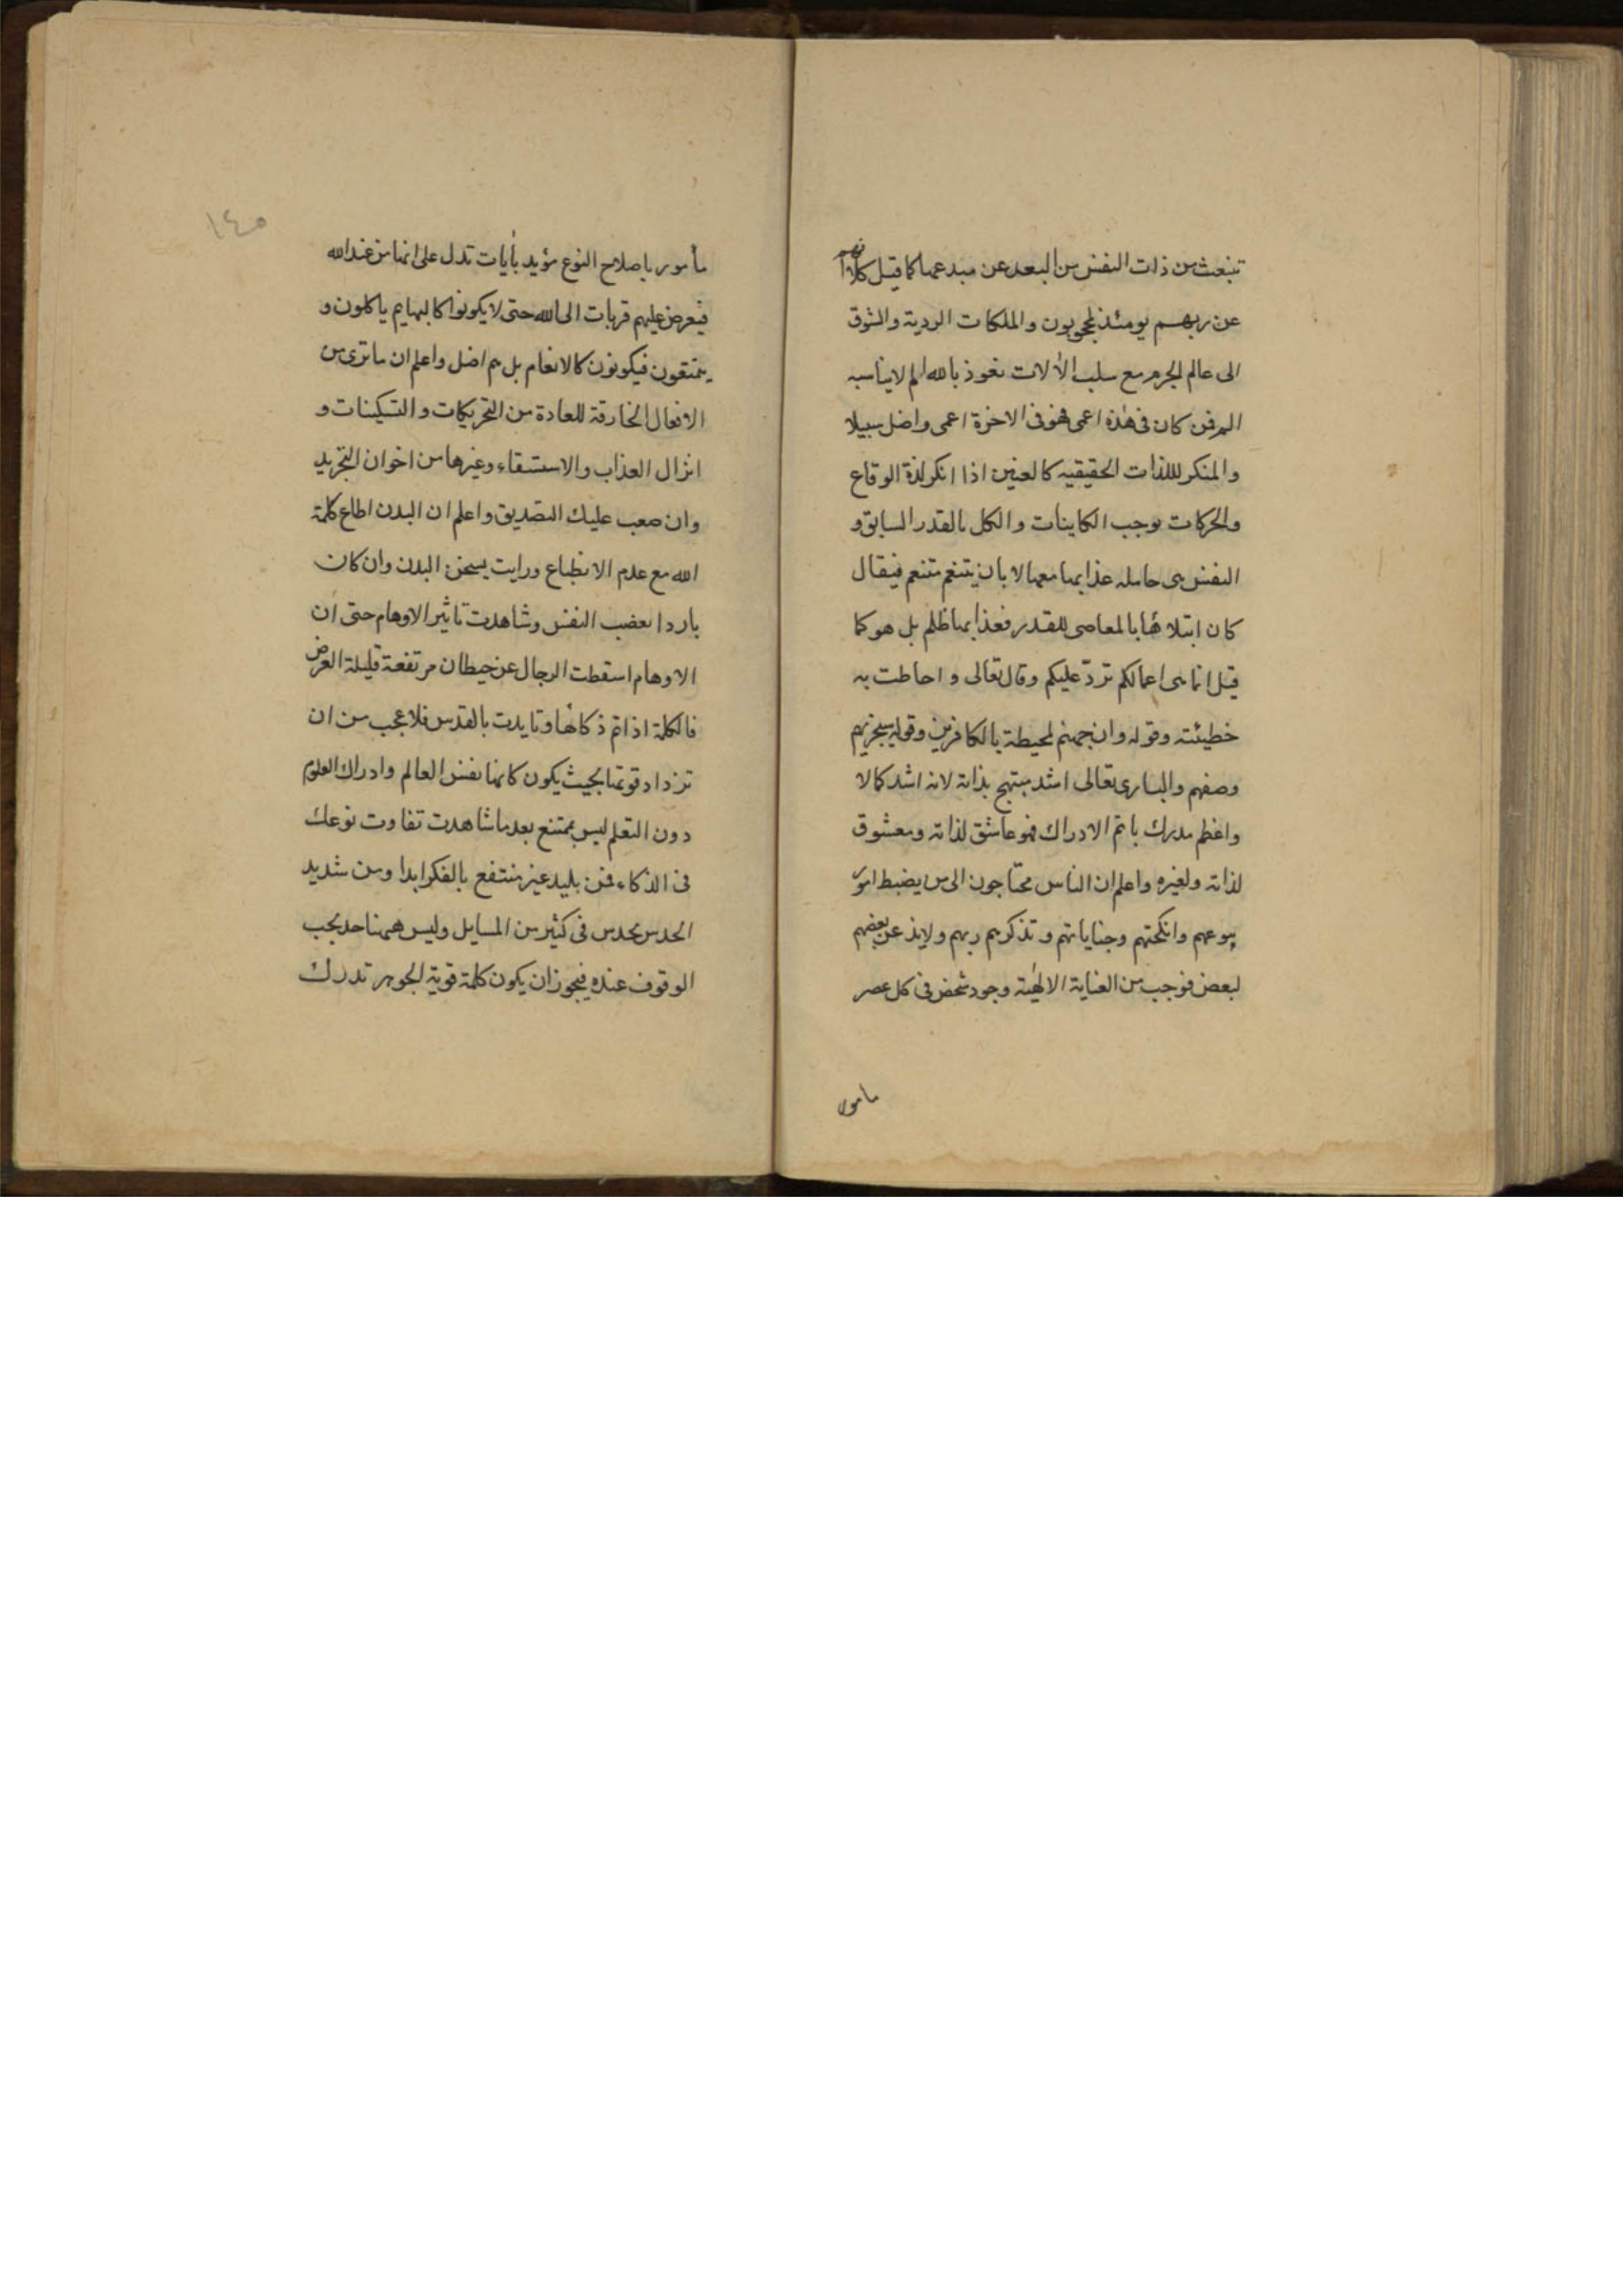 تنبعث من ذات النفس من البعد عن مبدعها كما قيل كلا انهم
عن ربهم يومئذ لمحجوبون والملكات الردية والشوق
الى عالم الجرم مع سلب الآلات نعوذ بالله الم لا يناسبه
الم فمن كان فى هذه اعمى فهو فى الاخرة اعمى واضل سبيلا
والمنكر للذات الحقيقيه كالعنين اذا انكر لذة الوقاع
والحركات توجب الكاينات والكل بالقدر السابق و
النفس هى حامله عذابها معها لا بان ينتقم منتقم فيقال
كان ابتلاؤها بالمعاصى للقدر فعذابها ظلم بل هو كما
قيل انما هى اعمالكم تردّ عليكم وقال تعالى و احاطت به
خطيئته وقوله وان جهنم لمحيطة بالكافرين وقوله سيجزيهم
وصفهم والبارى تعالى اشد مبتهج بذاته لانه اشد كمالا
واعظم مدرك باتم الادراك فهو عاشق لذاته ومعشوق
لذاته ولغيره واعلم ان الناس محتاجون الى من يضبط امور
بيوعهم وانكحتهم وجناياتهم و تذكرهم ربهم ولابد عن بعضهم
لبعض فوجب من العناية الالهية وجود شخص فى كل عصر
مامور
١٤٥
مأمور باصلاح النوع مؤيد بأيات تدل على انها من عند الله
فيعرض عليهم قربات الى الله حتى لا يكونوا كالبهايم ياكلون و
يتمتعون فيكونون كالانعام بل هم اضل واعلم ان ما ترى من
الافعال الخارقة للعادة من التحريكات و التسكينات و
انزال العذاب والاستسقاء وغيرها من اخوان التجريد
وان صعب عليك التصديق واعلم ان البدن اطاع كلمة
الله مع عدم الانطباع ورايت يسخن البدن وان كان
باردا بغضب النفس وشاهدت تاثير الاوهام حتى ان
الاوهام اسقطت الرجال عن حيطان مرتفعة قليلة العرض
فالكلمة اذا تم ذكاؤها وتايدت بالقدس فلا عجب من ان
تزداد قوتها بحيث يكون كانها نفس العالم وادراك العلوم
دون التعلم ليس بممتنع بعد ما شاهدت تفاوت نوعك
فى الذكاء فمن بليد غير منتفع بالفكر ابدا ومن شديد
الحدس يحدس فى كثير من المسايل وليس ههنا حد يجب
الوقوف عنده فيجوز ان يكون كلمة قوية الجوهر تدرك